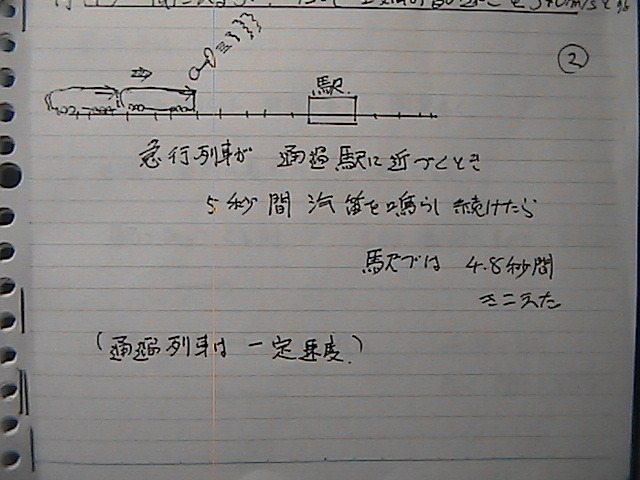 340m/sと
②
駅
急行列車が 通過駅に近づくとき
5秒間 汽笛を鳴らし続けたら
駅では 4.8秒間
きこえた
(通過列車は 一定速度.)